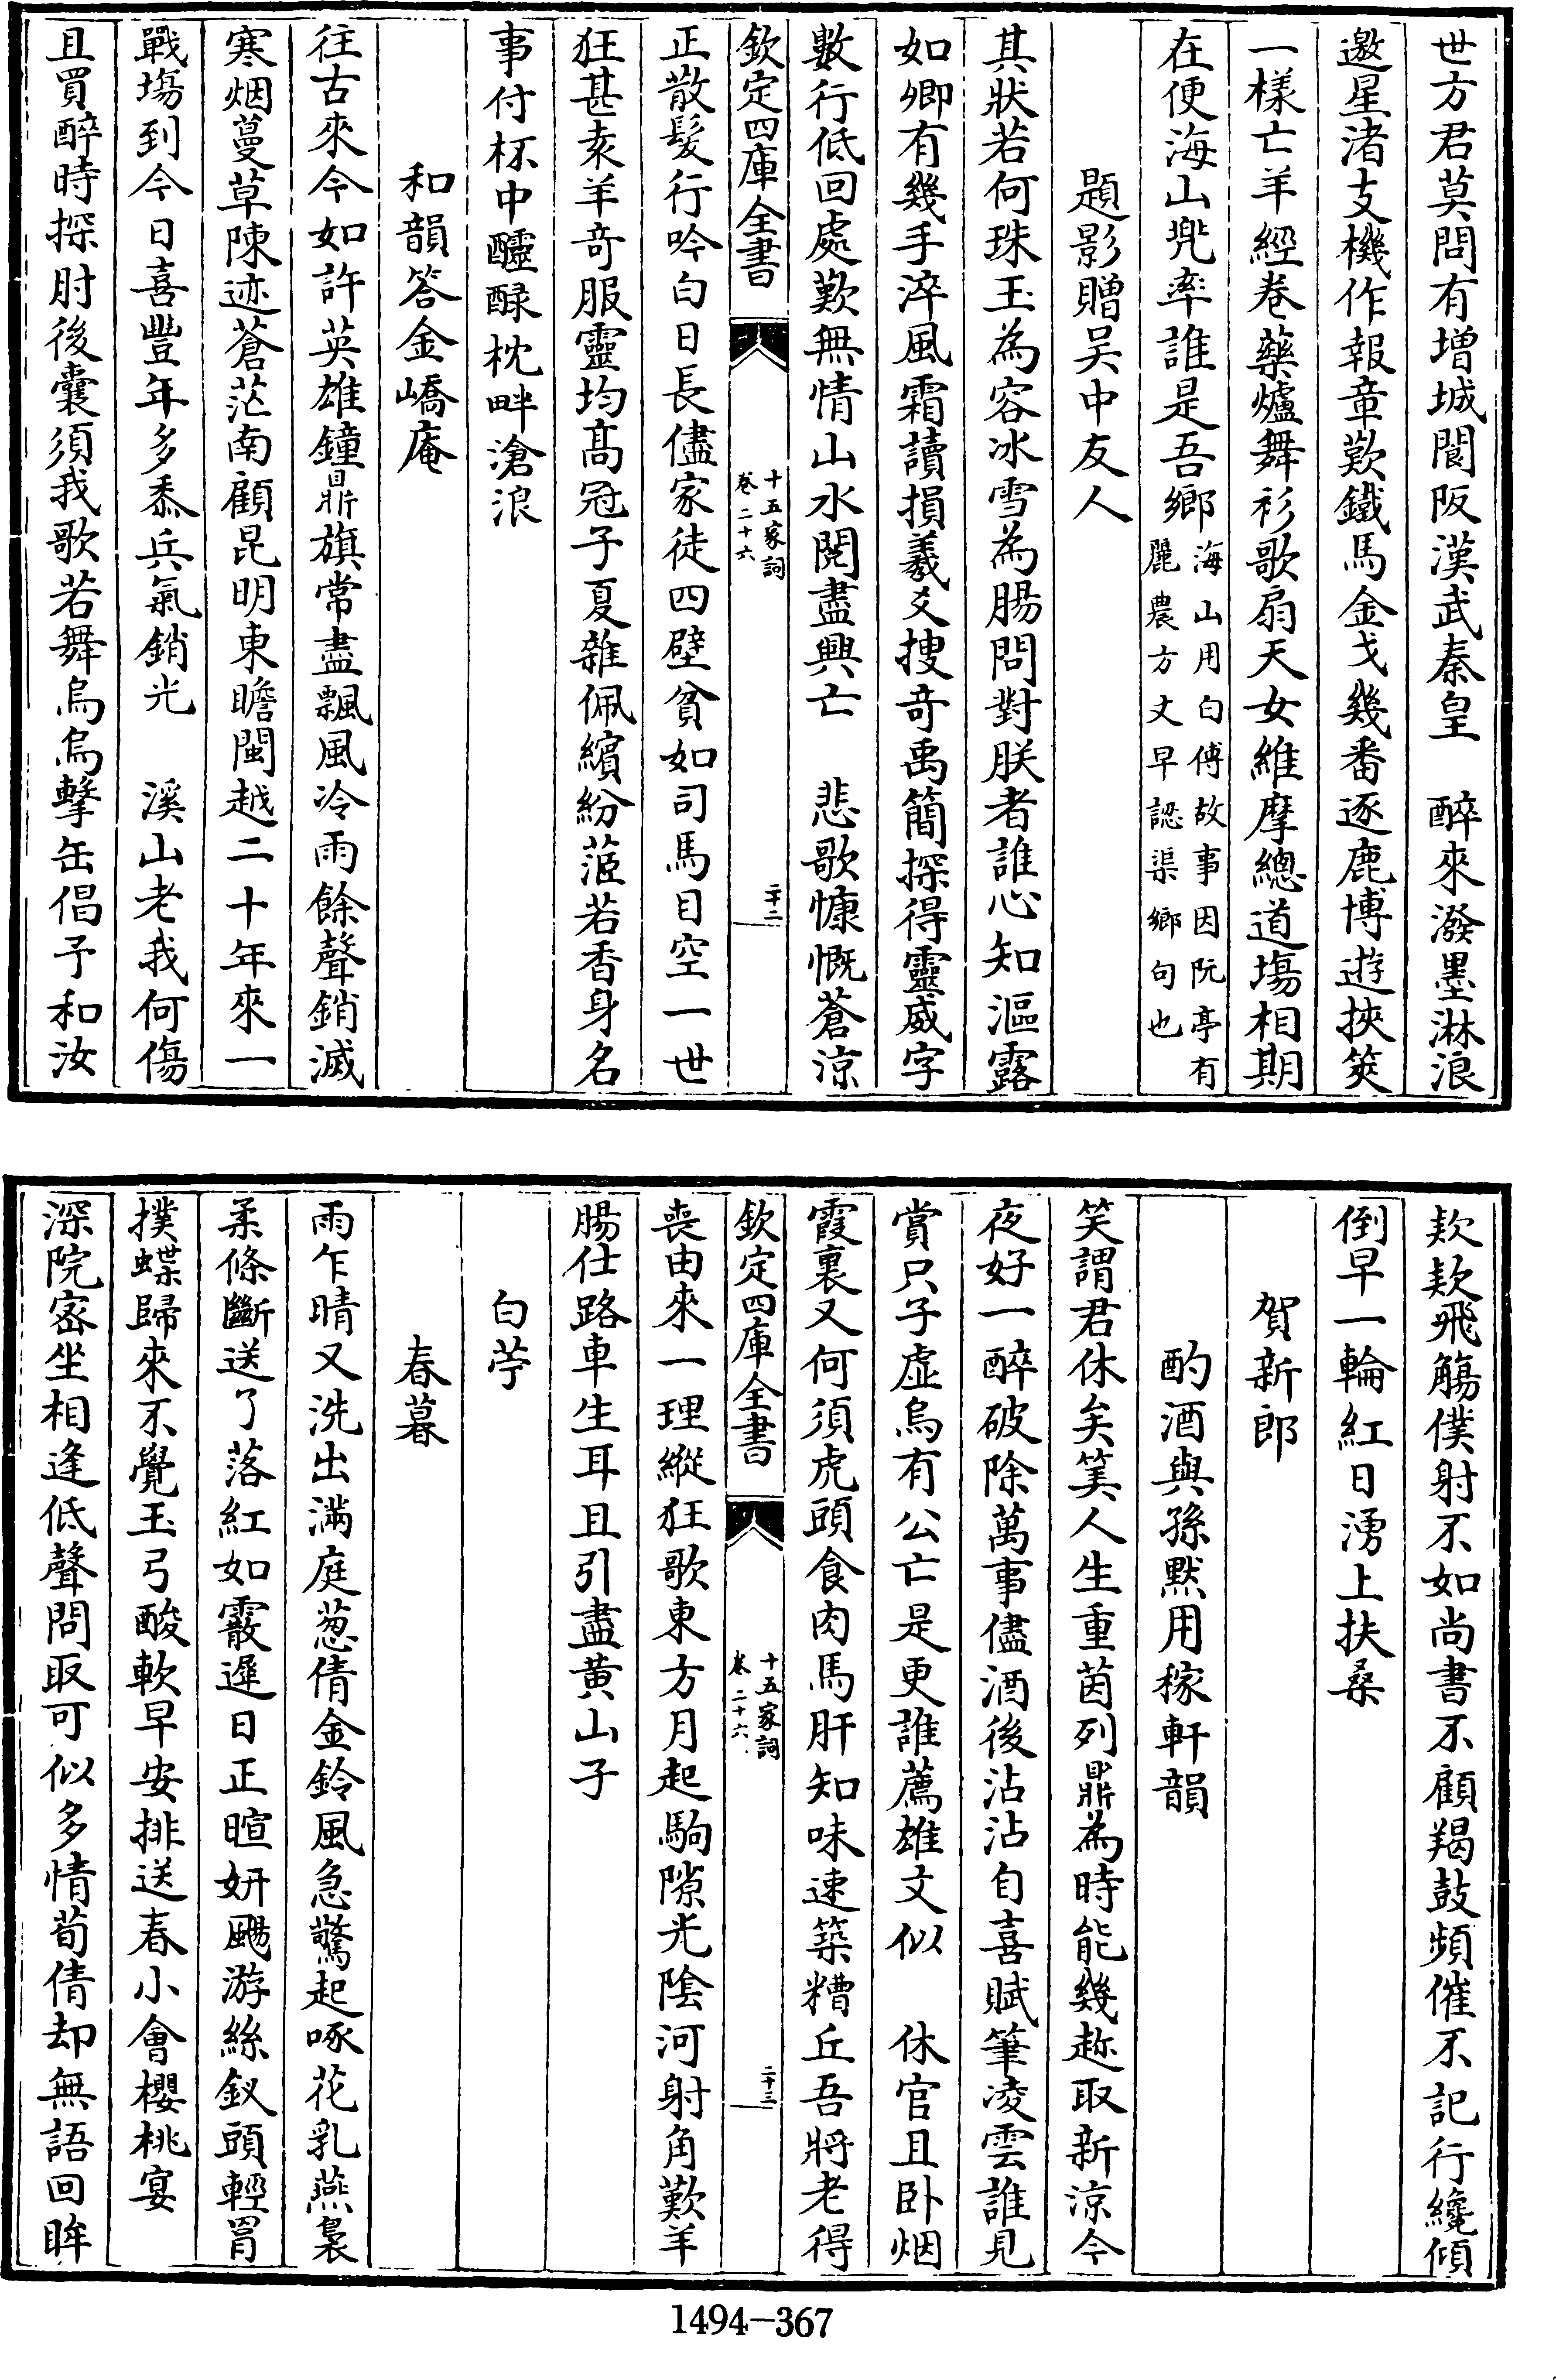 世方君莫問有增城閬阪漢武秦皇　醉來潑墨淋浪
邀星渚支機作報章歎鐵馬金戈幾番逐鹿博遊挾筴
一樣亡羊經卷藥爐舞衫歌扇天女維摩總道塲相期
在便海山兜率誰是吾鄉海山用白傅故事因阮亭有
麗農方丈早認渠鄉句也
題影贈吴中友人
其狀若何珠玉為容冰雪為腸問對朕者誰心知漚露
如卿有幾手淬風霜讀損羲爻搜奇禹簡探得靈威字
數行低回處歎無情山水閱盡興亡　悲歌慷慨蒼涼
欽定四庫全書
十五家詞
卷二十六
二十二
正散髮行吟白日長儘家徒四壁貧如司馬目空一世
狂甚袁羊奇服靈均髙冠子夏雜佩繽紛茝若香身名
事付杯中醽醁枕畔滄浪
和韻答金嶠庵
往古來今如許英雄鐘鼎旗常盡飄風冷雨餘聲銷滅
寒烟蔓草陳迹蒼茫南顧昆明東瞻閩越二十年來一
戰塲到今日喜豐年多黍兵氣銷光　溪山老我何傷
且買醉時探肘後囊須我歌若舞烏烏擊缶倡予和汝
欵欵飛觴僕射不如尚書不顧羯鼓頻催不記行纔傾
倒早一輪紅日湧上扶桑
賀新郎
酌酒與孫黙用稼軒韻
笑謂君休矣筭人生重茵列鼎為時能幾趂取新涼今
夜好一醉破除萬事儘酒後沾沾自喜賦筆凌雲誰見
賞只子虛烏有公亡是更誰薦雄文似　休官且卧烟
霞裏又何須虎頭食肉馬肝知味速築糟丘吾將老得
欽定四庫全書
十五家詞
卷二十六
二十三
喪由來一理縱狂歌東方月起駒隙光陰河射角歎羊
腸仕路車生耳且引盡黄山子
白苧
春暮
雨乍晴又洗出滿庭葱倩金鈴風急驚起啄花乳燕裊
柔條斷送了落紅如霰遲日正暄妍颺游絲釵頭輕罥
撲蝶歸來不覺玉弓酸軟早安排送春小會櫻桃宴
深院宻坐相逢低聲問取可似多情荀倩却無語回眸
1494-367